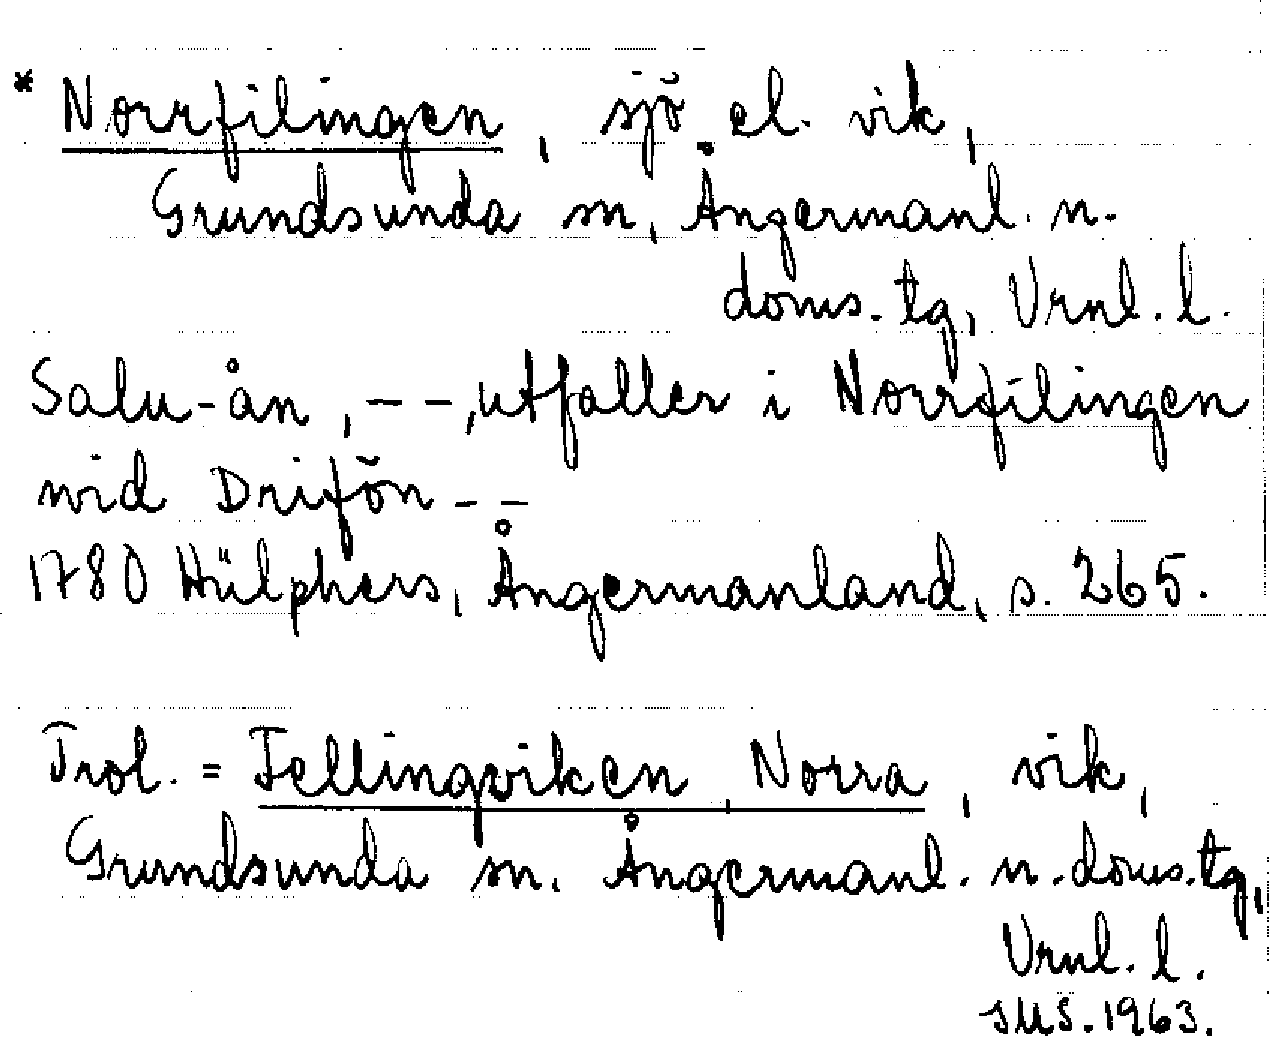 * Norrfilingen, sjö el. vik,
Grundsunda sn, Ångermanl. n.
doms. tg, Vrnl. l.
Salu-ån, - -, utfaller i Norrfilingen
wid Drifön - -
1780 Hülphers, Ångermanland, s. 265.
Trol. = Fellingviken, Norra, vik,
Grundsunda sn. Ångermanl. n. doms. tg,
Vrnl. l.
SMS. 1963.